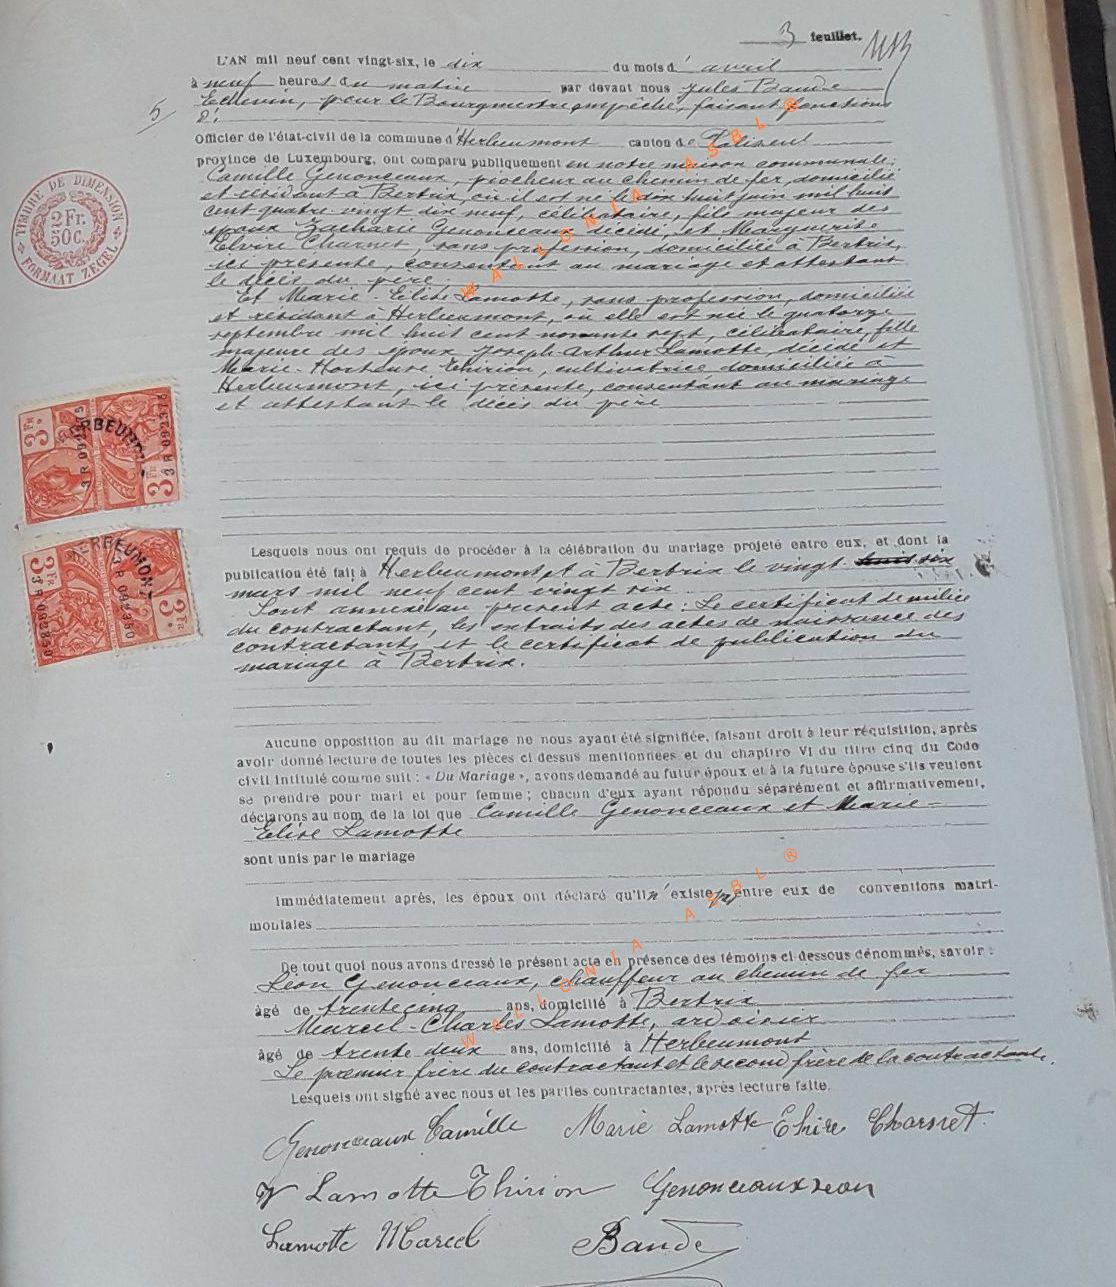 3 feuillet.
L'AN mil neuf cent vingt-six, le dix du mois d' avril
à neuf heures du matin par devant nous Jules Baude
5 Echevin, pour le Bourgmestre empêché, faisant fonctions
d'
Officier de l'état-civil de la commune d'Herbeumont canton de Paliseul
province de Luxembourg, ont comparu publiquement en notre maison communale:
Camille Genonceaux, piocheur au chemin de fer, domicilié
et résidant à Bertrix, où il est né le huit juin mil huit
cent quatre-vingt dix neuf, célibataire, fils majeur des
époux Zacharie Genonceaux décédé, et Marguerite
Elvire Charnet, sans profession, domiciliée à Bertrix,
ici présente, consentant au mariage et attestant
le décès du père
Et Marie-Elise Lamotte, sans profession, domiciliée
et résidant à Herbeumont, où elle est née le quatorze
septembre mil huit cent nonante sept, célibataire, fille
majeure des époux Joseph-Arthur Lamotte, décédé et
Marie-Hortense Thirion, cultivatrice domiciliée à
Herbeumont, ici présente, consentant au mariage
et attestant le décès du père
Lesquels nous ont requis de procéder à la célébration du mariage projeté entre eux, et dont la
publication été fait à Herbeumont et à Bertrix le vingt huit six
mars mil neuf cent vingt six
Sont annexés au présent acte: Le certificat de milice
du contractant, les extraits des actes de naissance des
contractants et le certificat de publication du
mariage à Bertrix.
Aucune opposition au dit mariage ne nous ayant été signifiée, faisant droit à leur réquisition, après
avoir donné lecture de toutes les pièces ci dessus mentionnées et du chapitre VI du titre cinq du Code
civil intitulé comme suit : « Du Mariage », avons demandé au futur époux et à la future épouse s'ils veulent
se prendre pour mari et pour femme ; chacun d'eux ayant répondu séparément et affirmativement,
déclarons au nom de la loi que Camille Genonceaux et Marie-
Elise Lamotte
sont unis par le mariage
Immédiatement après, les époux ont déclaré qu'il n'existe pas entre eux de conventions matri-
moniales
De tout quoi nous avons dressé le présent acte en présence des témoins ci-dessous dénommés, savoir :
Léon Genonceaux, chauffeur au chemin de fer
âgé de trente cinq ans, domicilié à Bertrix
Marcel-Charles Lamotte, ardoisier
âgé de trente deux ans, domicilié à Herbeumont
Le premier frère du contractant et le second frère de la contractante.
Lesquels ont signé avec nous et les parties contractantes, après lecture faite.
Genonceaux Camille Marie Lamotte Elvire Charnet.
Lamotte Thirion Genonceaux Leon
Lamotte Marcel Baude
TIMBRE DE DIMENSION
2 Fr.
50C.
FORMAAT ZEGEL
HERBEUMONT
3 Fr
3 R 092378
HERBEUMONT
3 Fr
WALLONIA ASBL ®
WALLONIA ASBL ®